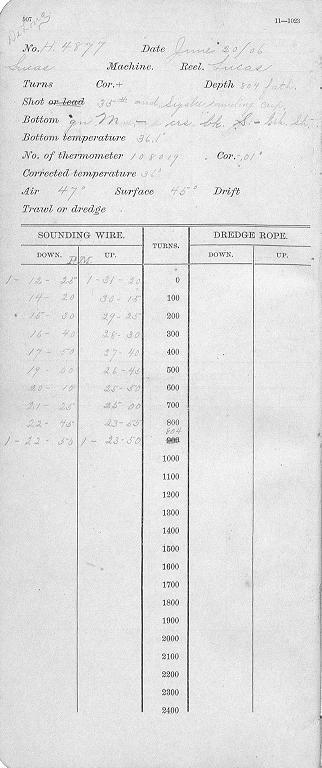 507 11—1023
No. H. 4877 Date June 20/06
Lucas Machine. Reel. Lucas
Turns Cor. + Depth 804 Fath.
Shot or lead 35 lb and Sigsbee sounding cup
Bottom gn M
Bottom temperature 36.1°
No. of thermometer 108019 Cor. .01°
Corrected temperature 36°
Air 47° Surface 45° Drift
Trawl or dredge
SOUNDING WIRE. TURNS. DREDGE ROPE.
DOWN. UP. DOWN. UP.
P.M.
1-12-25 1-31-20 0
14-20 30-15 100
15-30 29-25 200
16-40 28-30 300
17-50 27-40 400
19-00 26-45 500
20-10 25-50 600
21-25 25-00 700
22-45 23-55 800
804
1-22-50 1-23-50 900
1000
1100
1200
1300
1400
1500
1600
1700
1800
1900
2000
2100
2200
2300
2400